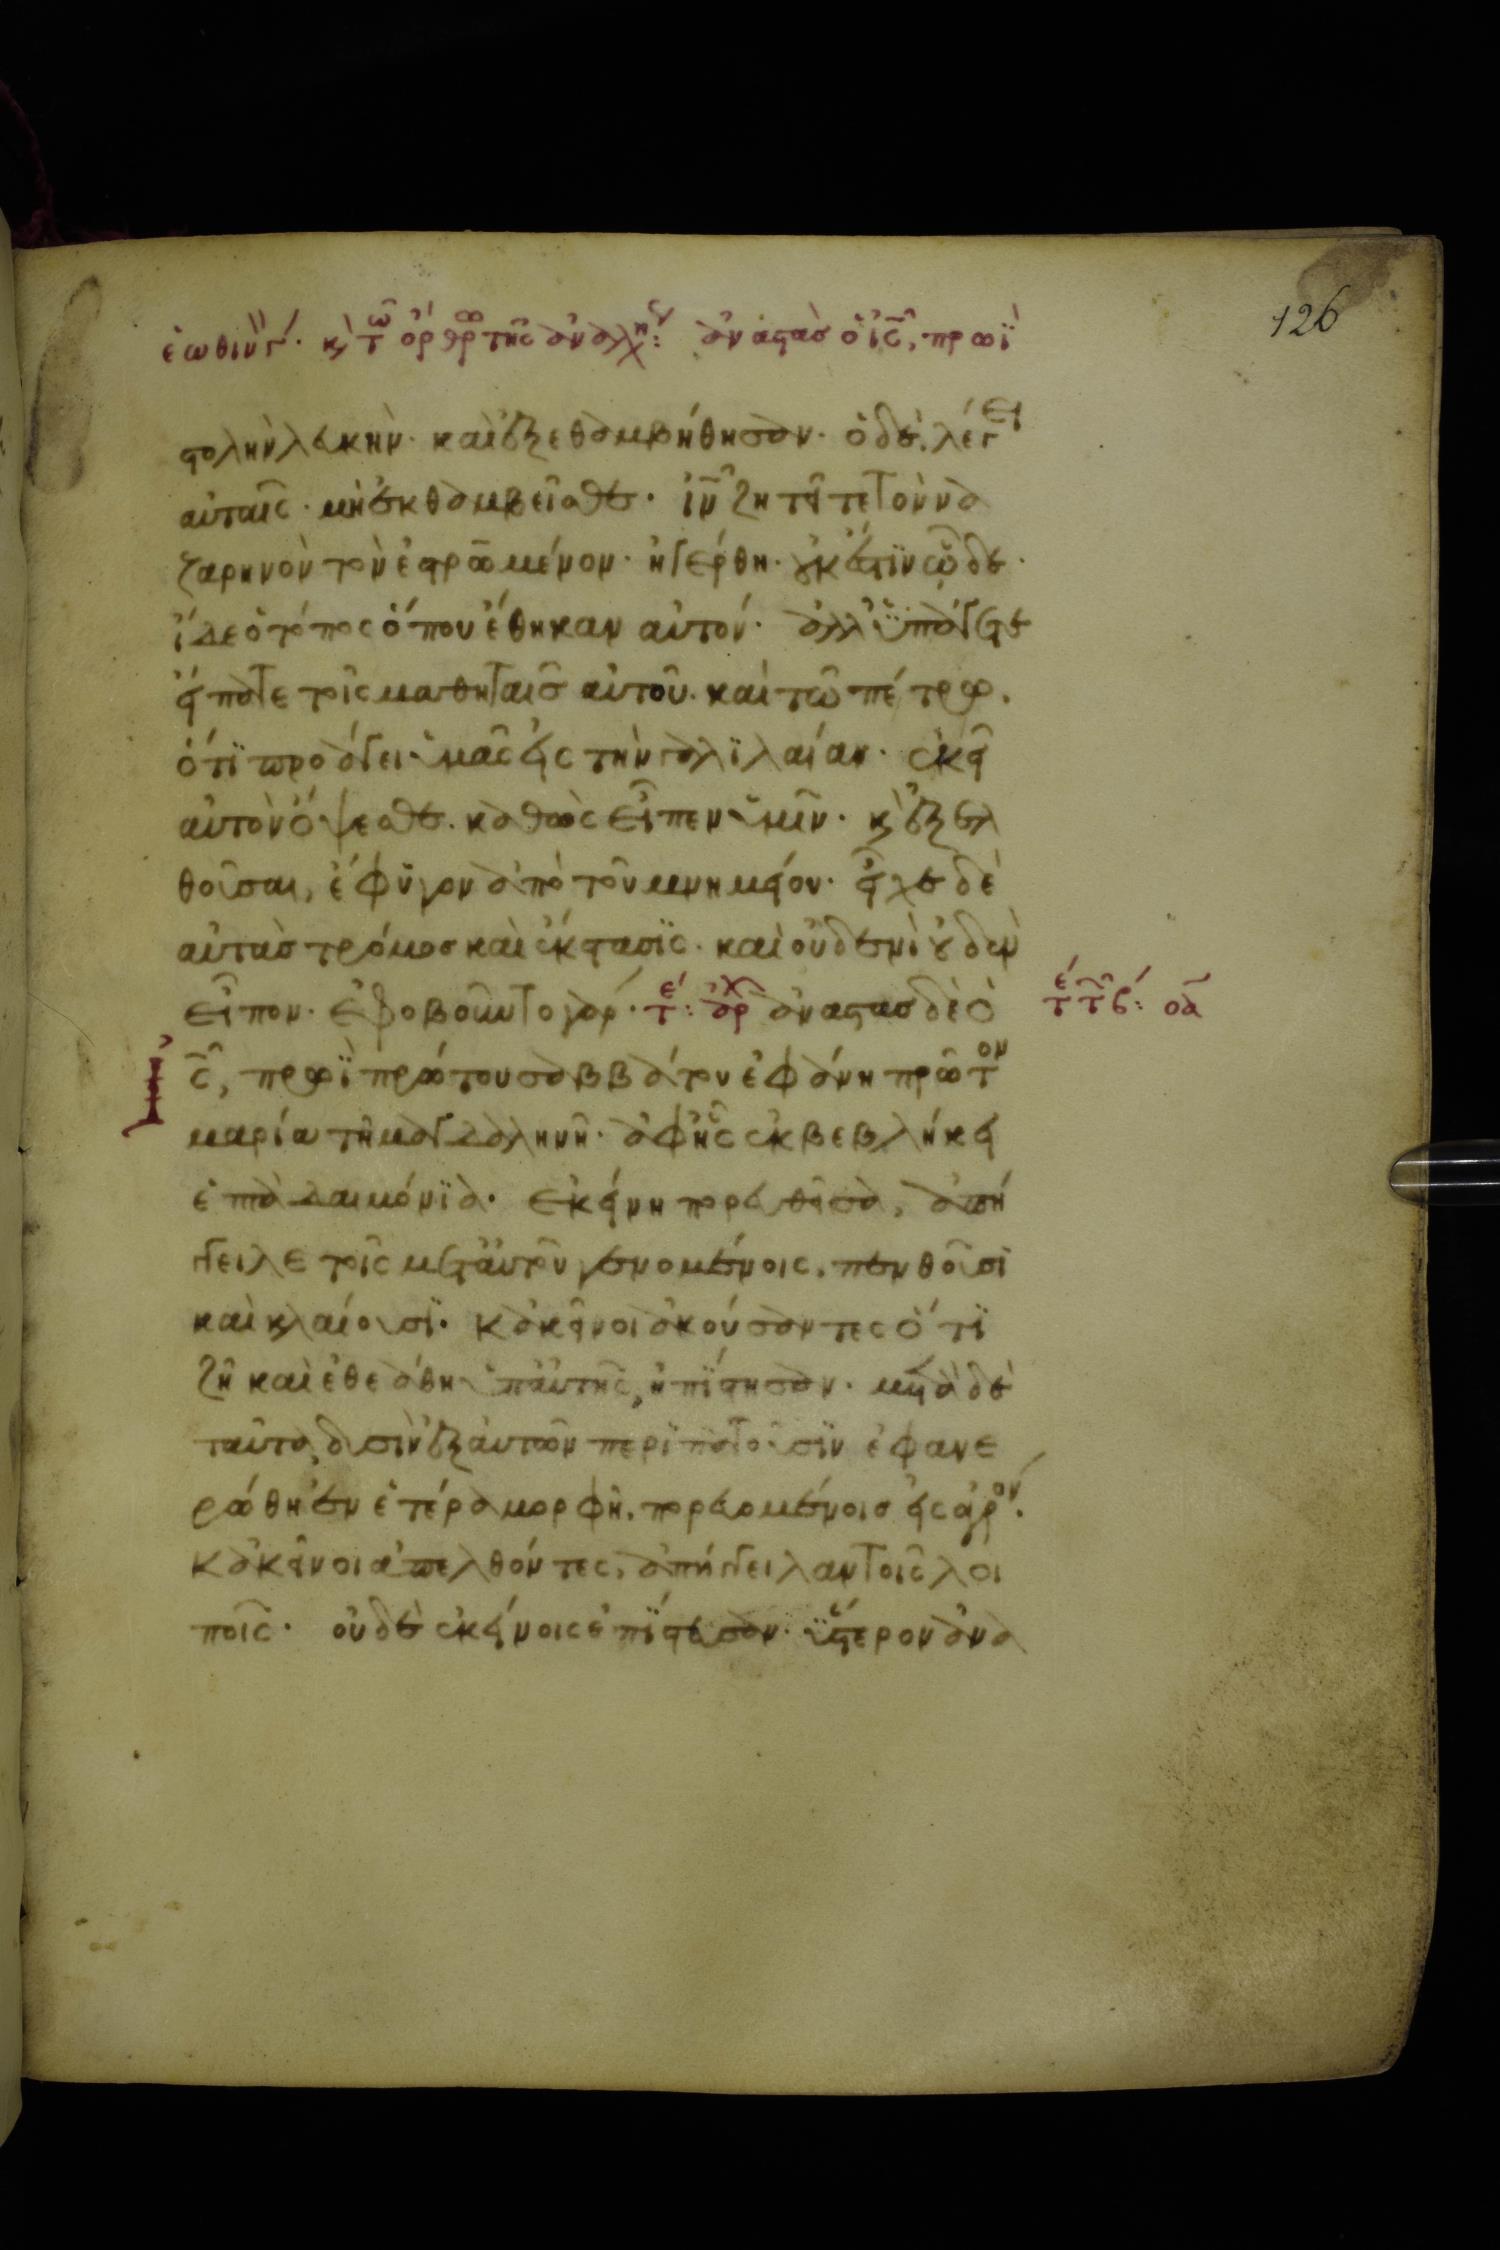 126
ἑωθινὸν γ΄. κ(αὶ) τω ὀρθρω τῆς ἀναλήχ: ἀναστὰς ὁ ις, πρωῒ
στολὴν λευκήν. καὶ ἐξεθαμβήθησαν. ὁ δὲ, λέγει
αὐταῖς. μὴ ἐκθαμβεῖσθε. ιν ζητεῖτε τὸν να
ζαρηνὸν τὸν ἐστρωμένον. ἠγέρθη. οὐκ ἔστϊν ὧδε.
ἴδε ὁ τόπος ὅπου ἔθηκαν αὐτόν. ἀλλ' ὑπάγετε
εἴπατε τοῖς μαθηταῖσ αὐτοῦ. καὶ τῶ πέτρω.
ὅτϊ προάγει ὑμᾶς εἰς τὴν γαλϊλαίαν. ἐκεῖ
αὐτὸν ὄψεσθε. καθὼς εἶπεν ὑμῖν. κ(αὶ) ἐξελ
θοῦσαι, ἔφυγον ἀπὸ τοῦ μνημείου. εἶχε δὲ
αὐτὰσ τρόμοσ καὶ ἔκστασϊς. καὶ οὐδενὶ οὐδὲν
εἶπον. ἐφοβοῦντο γάρ. τε: ἀρχ ἀναστασ δὲ ὁ
τε τῆς ϛ: σλα
Ἰς, πρωῒ πρώτου σαββάτου ἐφάνη πρῶτον
μαρία τῆ μαγδαληνῆ. ἀφ' ἧς ἐκβεβλήκει
ἑπτὰ δαιμόνϊα. ἐκείνη πορευθεῖσα, ἀπή
γγειλε τοῖς μετ' αὐτοῦ γενομένοις, πενθοῦσϊ
καὶ κλαίουσϊ. κἀκεῖνοι ἀκούσαντες ὅτϊ
ζῆ καὶ ἐθεάθη ὑπ' αὐτῆς, ἠπίστησαν. μετὰ δὲ
ταῦτα, δυσὶν ἐξ αὐτῶν περϊπατοῦσϊν ἐφανε
ρώθη ἐν ἑτέρα μορφῆ. πορευομένοισ εἰς ἀγρόν.
κἀκεῖνοι ἀπελθόντες, ἀπήγγειλαν τοῖς λοι
ποῖς. οὐδὲ ἐκείνοις ἐπίστευσαν. ὕστερον ἀνα